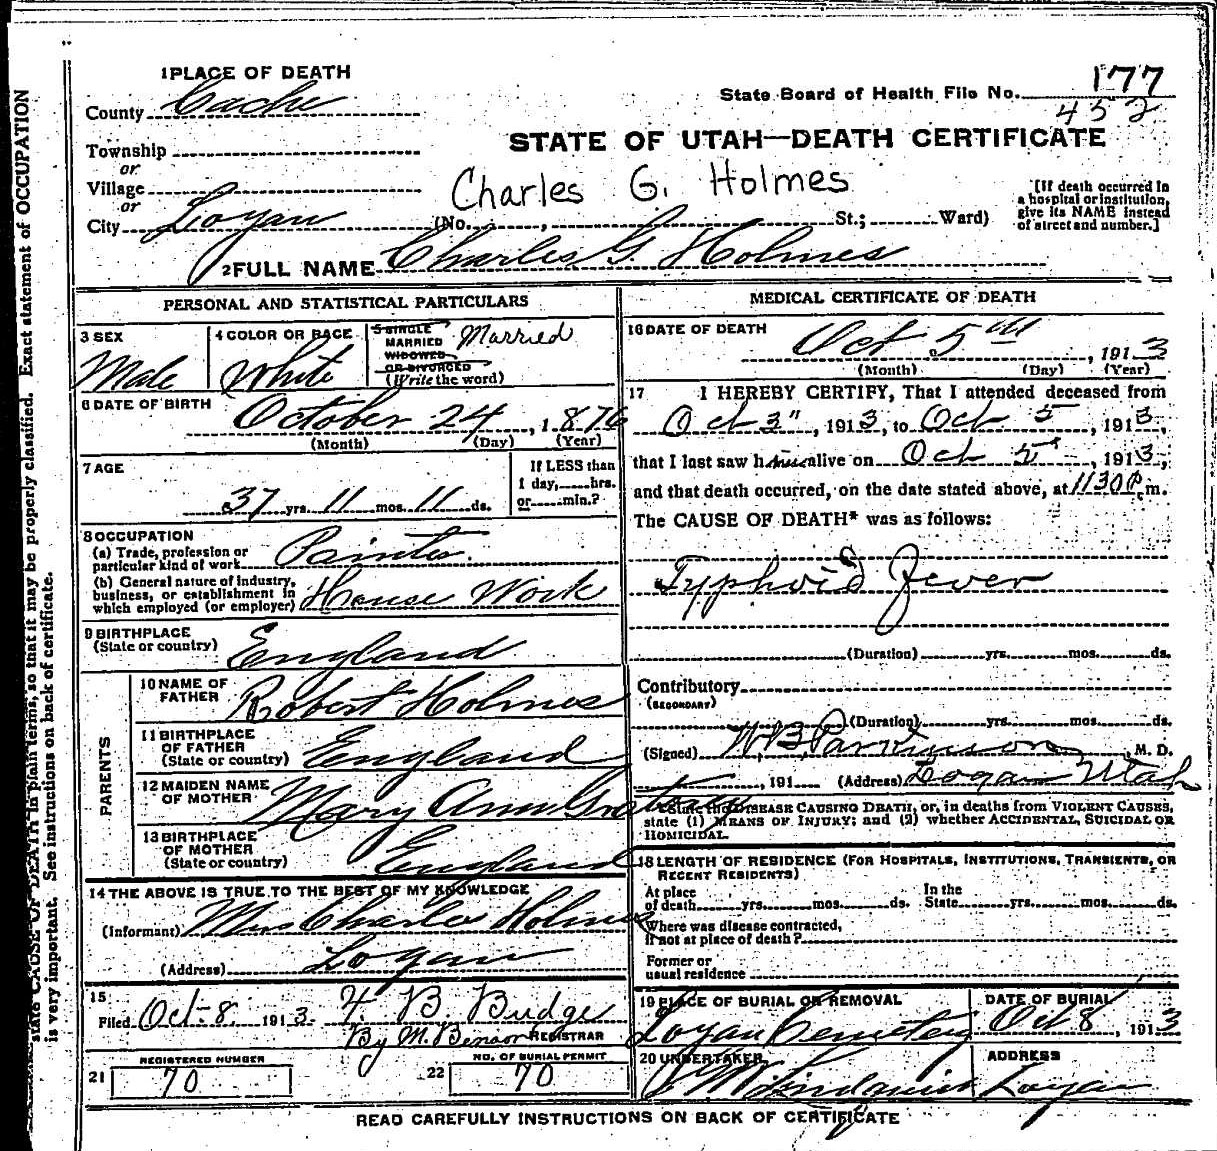 state CAUSE OF DEATH in plain terms, so that it may be properly classified. Exact statement of OCCUPATION
is very important. See instructions on back of certificate.
1 PLACE OF DEATH
County Cache
Township
or
Village
or
City Logan
State Board of Health File No. 177
452
STATE OF UTAH—DEATH CERTIFICATE
Charles G. Holmes
(No. , St.; Ward)
[If death occurred in
a hospital or institution,
give its NAME instead
of street and number.]
2 FULL NAME Charles G. Holmes
PERSONAL AND STATISTICAL PARTICULARS
3 SEX
Male
4 COLOR OR RACE
White
5 SINGLE
MARRIED
WIDOWED
OR DIVORCED
(Write the word)
Married
6 DATE OF BIRTH
October 24, 1876
(Month) (Day) (Year)
7 AGE
37 yrs. 11 mos. 11 ds.
If LESS than
1 day, hrs.
or min.?
8 OCCUPATION
(a) Trade, profession or
particular kind of work Painter.
(b) General nature of industry,
business, or establishment in
which employed (or employer) House Work
9 BIRTHPLACE
(State or country) England
PARENTS
10 NAME OF
FATHER Robert Holmes
11 BIRTHPLACE
OF FATHER
(State or country) England
12 MAIDEN NAME
OF MOTHER Mary Ann
13 BIRTHPLACE
OF MOTHER
(State or country) England
14 THE ABOVE IS TRUE TO THE BEST OF MY KNOWLEDGE
(Informant) Mrs Charles Holmes
(Address) Logan
15
Filed Oct. 8. 1913. F. B Budge
By M. Benson REGISTRAR
REGISTERED NUMBER
21 70
NO. OF BURIAL PERMIT
22 70
MEDICAL CERTIFICATE OF DEATH
16 DATE OF DEATH
Oct 5th, 1913
(Month) (Day) (Year)
17 I HEREBY CERTIFY, That I attended deceased from
Oct 3", 1913, to Oct 5, 1913,
that I last saw him alive on Oct 5", 1913,
and that death occurred, on the date stated above, at 1130 P.m.
The CAUSE OF DEATH* was as follows:
Typhoid Fever
(Duration) yrs. mos. ds.
Contributory
(SECONDARY)
(Duration) yrs. mos. ds.
(Signed) W.B. Parkinson, M. D.
, 191 (Address) Logan Utah
*State the DISEASE CAUSING DEATH, or, in deaths from VIOLENT CAUSES,
state (1) MEANS OF INJURY; and (2) whether ACCIDENTAL, SUICIDAL OR
HOMICIDAL.
18 LENGTH OF RESIDENCE (FOR HOSPITALS, INSTITUTIONS, TRANSIENTS, OR
RECENT RESIDENTS)
At place
of death yrs. mos. ds.
In the
State yrs. mos. ds.
Where was disease contracted,
if not at place of death?
Former or
usual residence
19 PLACE OF BURIAL OR REMOVAL
Logan Cemetery
DATE OF BURIAL
Oct 8, 1913
20 UNDERTAKER
ADDRESS
Logan
READ CAREFULLY INSTRUCTIONS ON BACK OF CERTIFICATE